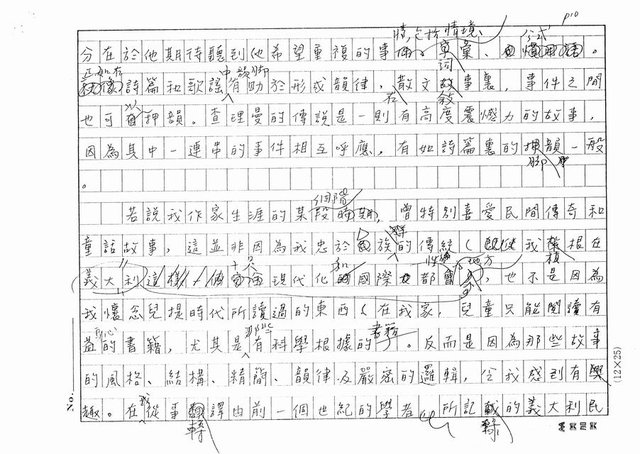 p10
分在於他期待聽到他希望重複的事情,包括情境、詞彙、公式。
正如在詩篇和歌謠中韻腳有助於形成韻律,在散文敘事裏,事件之間
也可以押韻。查理曼的傳說是一則有高度震懾力的故事,
因為其中一連串的事件相互呼應,有如詩篇裏的韻腳一般
。
若說我作家生涯的某個階段,曾特別喜愛民間傳奇和
童話故事,這並非因為我忠於民族的傳統(既然我植根在
義大利 現代化 國際 都 地方),也不是因為
我懷念兒提時代所讀過的東西(在我家,兒童只能閱讀有
益的書籍,尤其是那些有科學根據的書籍)。反而是因為那些故事
的風格、結構、精簡、韻律及嚴密的邏輯,令我感到有興
趣。在我從事轉譯由前一個世紀的學者所記錄的義大利民
No.
(12×25)